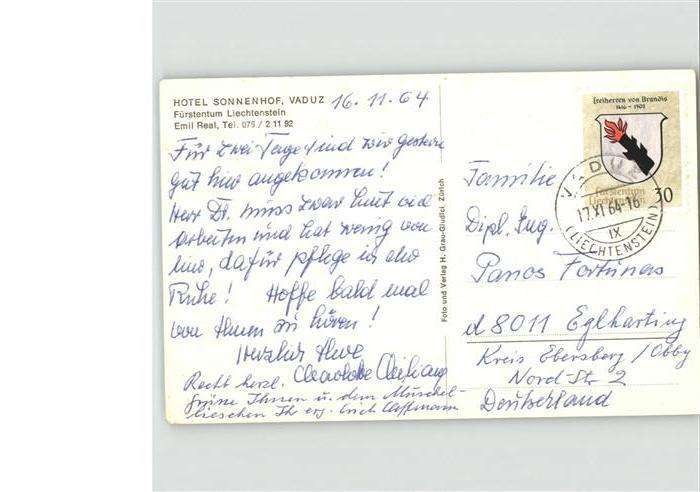 HOTEL SONNENHOF, VADUZ
Fürstentum Liechtenstein
Emil Real, Tel. 075 / 2 11 92
16. 11. 64
Für zwei Tage sind wir gestern
gut hier angekommen!
Herr Dr. muss zwar hier viel
arbeiten und hat wenig von
hier, dafür pflege ich die
Ruhe! Hoffe bald mal
von Ihnen zu hören!
Herzlich Ihre
Recht herzl.
Grüsse Ihnen u. dem Muschel-
lieschen Ihr erg. Erich
Foto und Verlag H. Grau-Giudici, Zürich
Freiherren von Brandis
1416 - 1509
Fürstentum
Liechtenstein
30
VADUZ
17.XI 64-16
IX
(LIECHTENSTEIN)
Familie
Dipl. Ing.
Panos Fortunas
d 8011 Eglharting
Kreis Ebersberg / Obby
Nord-Str 2
Deutschland